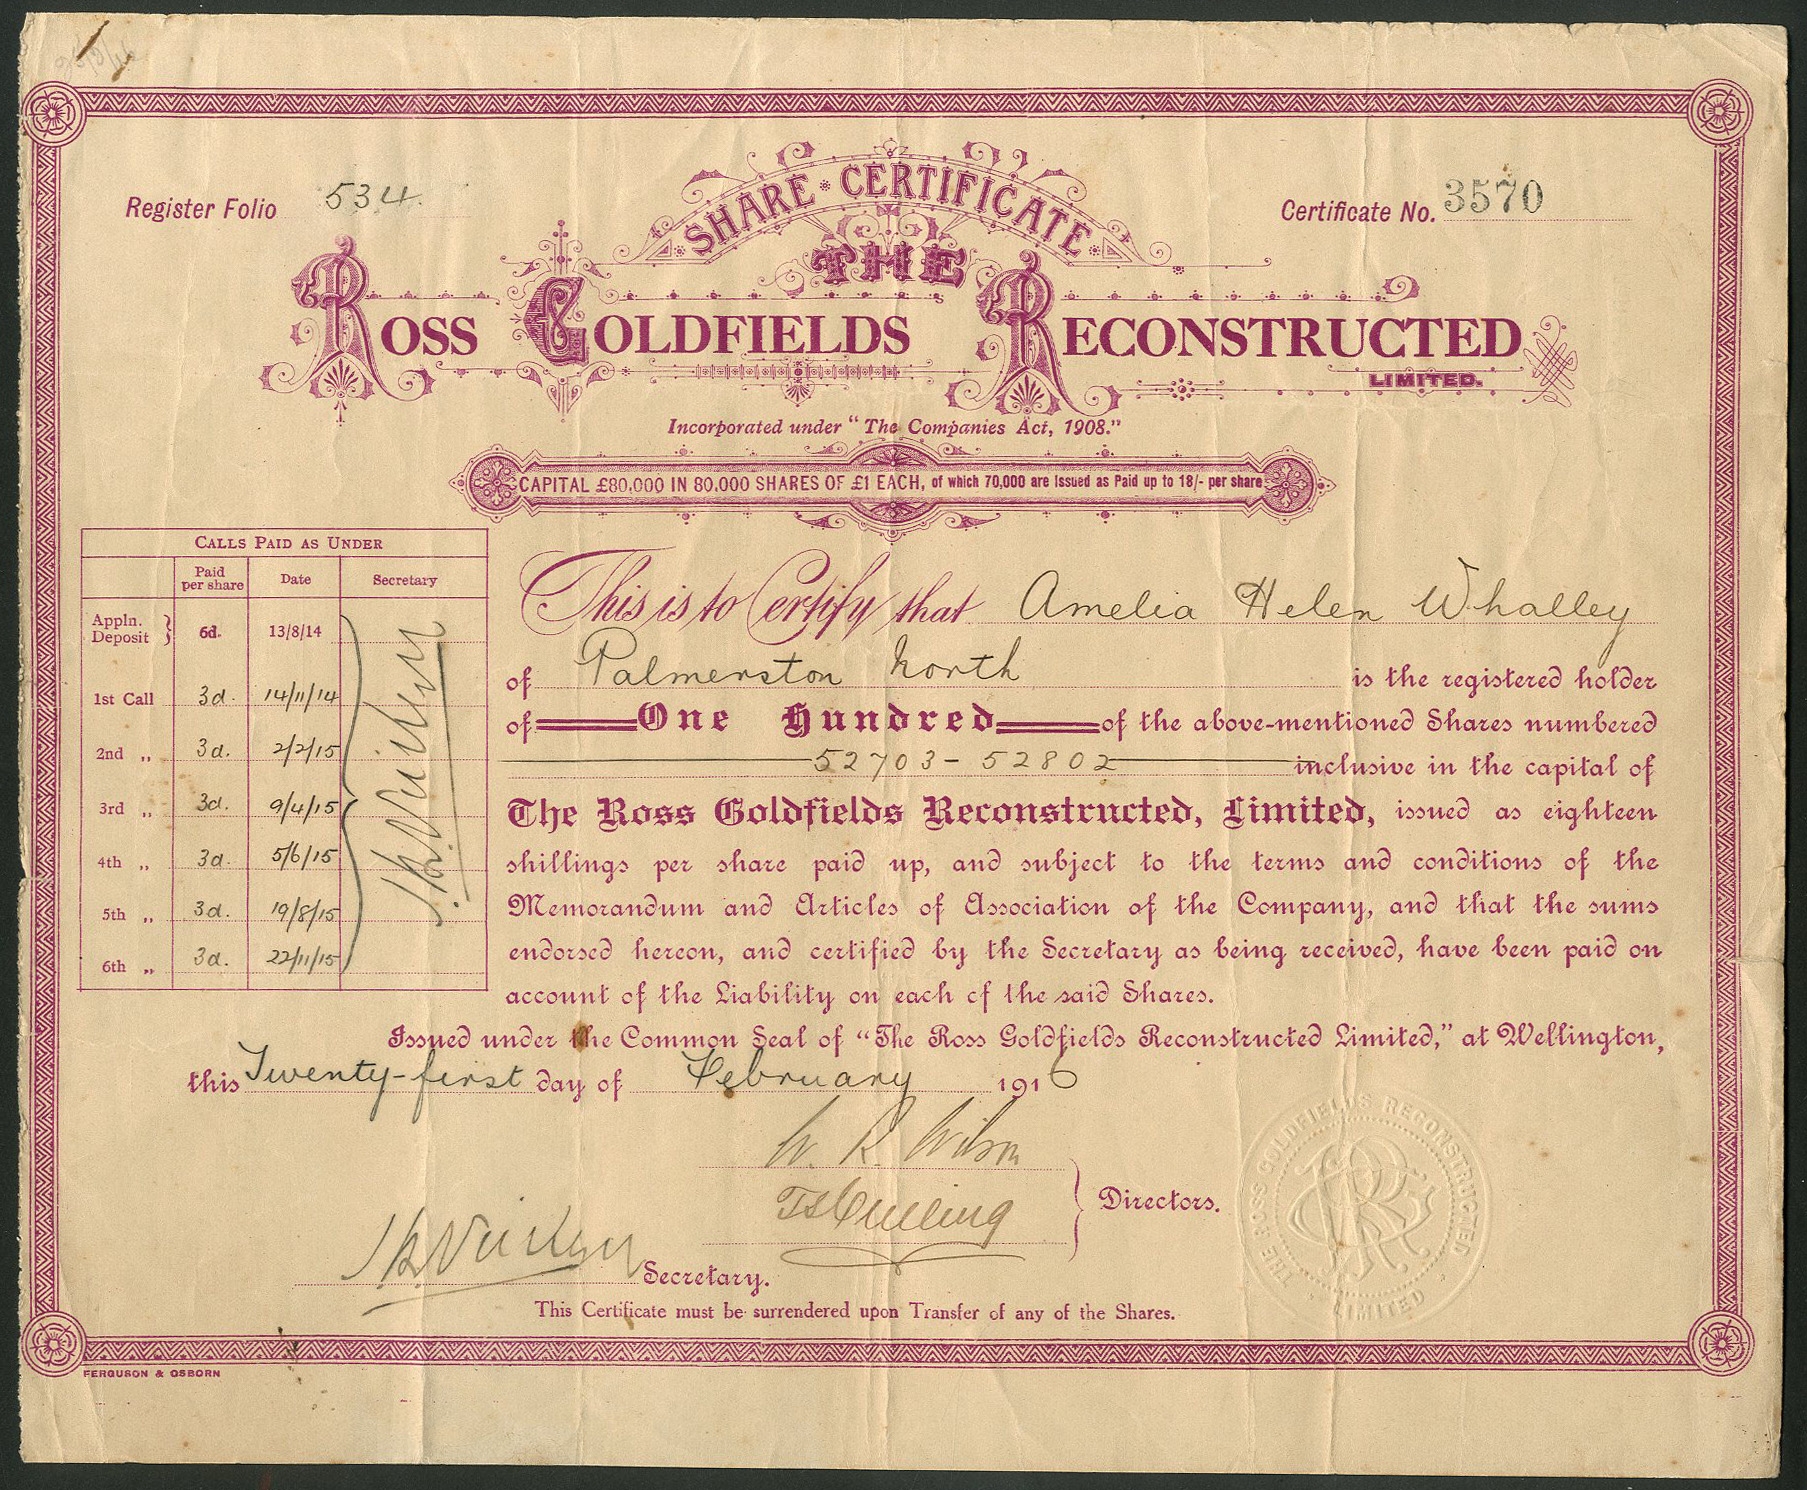 Register Folio 534.
SHARE CERTIFICATE
Certificate No. 3570
THE
ROSS GOLDFIELDS RECONSTRUCTED
LIMITED.
Incorporated under "The Companies Act, 1908."
CAPITAL £80,000 IN 80,000 SHARES OF £1 EACH, of which 70,000 are Issued as Paid up to 18/- per share
CALLS PAID AS UNDER
Paid per share Date Secretary
Appln. Deposit } 6d. 13/8/14
1st Call 3d. 14/11/14
2nd „ 3d. 2/2/15
3rd „ 3d. 9/4/15
4th „ 3d. 5/6/15
5th „ 3d. 19/8/15
6th „ 3d. 22/11/15
This is to Certify that Amelia Helen Whalley
of Palmerston North is the registered holder
of One Hundred of the above-mentioned Shares numbered
52703 - 52802 inclusive in the capital of
The Ross Goldfields Reconstructed, Limited, issued as eighteen
shillings per share paid up, and subject to the terms and conditions of the
Memorandum and Articles of Association of the Company, and that the sums
endorsed hereon, and certified by the Secretary as being received, have been paid on
account of the Liability on each of the said Shares.
Issued under the Common Seal of "The Ross Goldfields Reconstructed Limited," at Wellington,
this Twenty-first day of February 1916
W. R. Wilson
Directors.
Secretary.
THE ROSS GOLDFIELDS RECONSTRUCTED LIMITED
This Certificate must be surrendered upon Transfer of any of the Shares.
FERGUSON & OSBORN